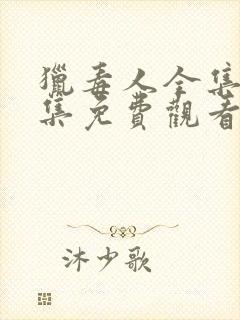 獵毒人全集
集免費觀看
沐少歌